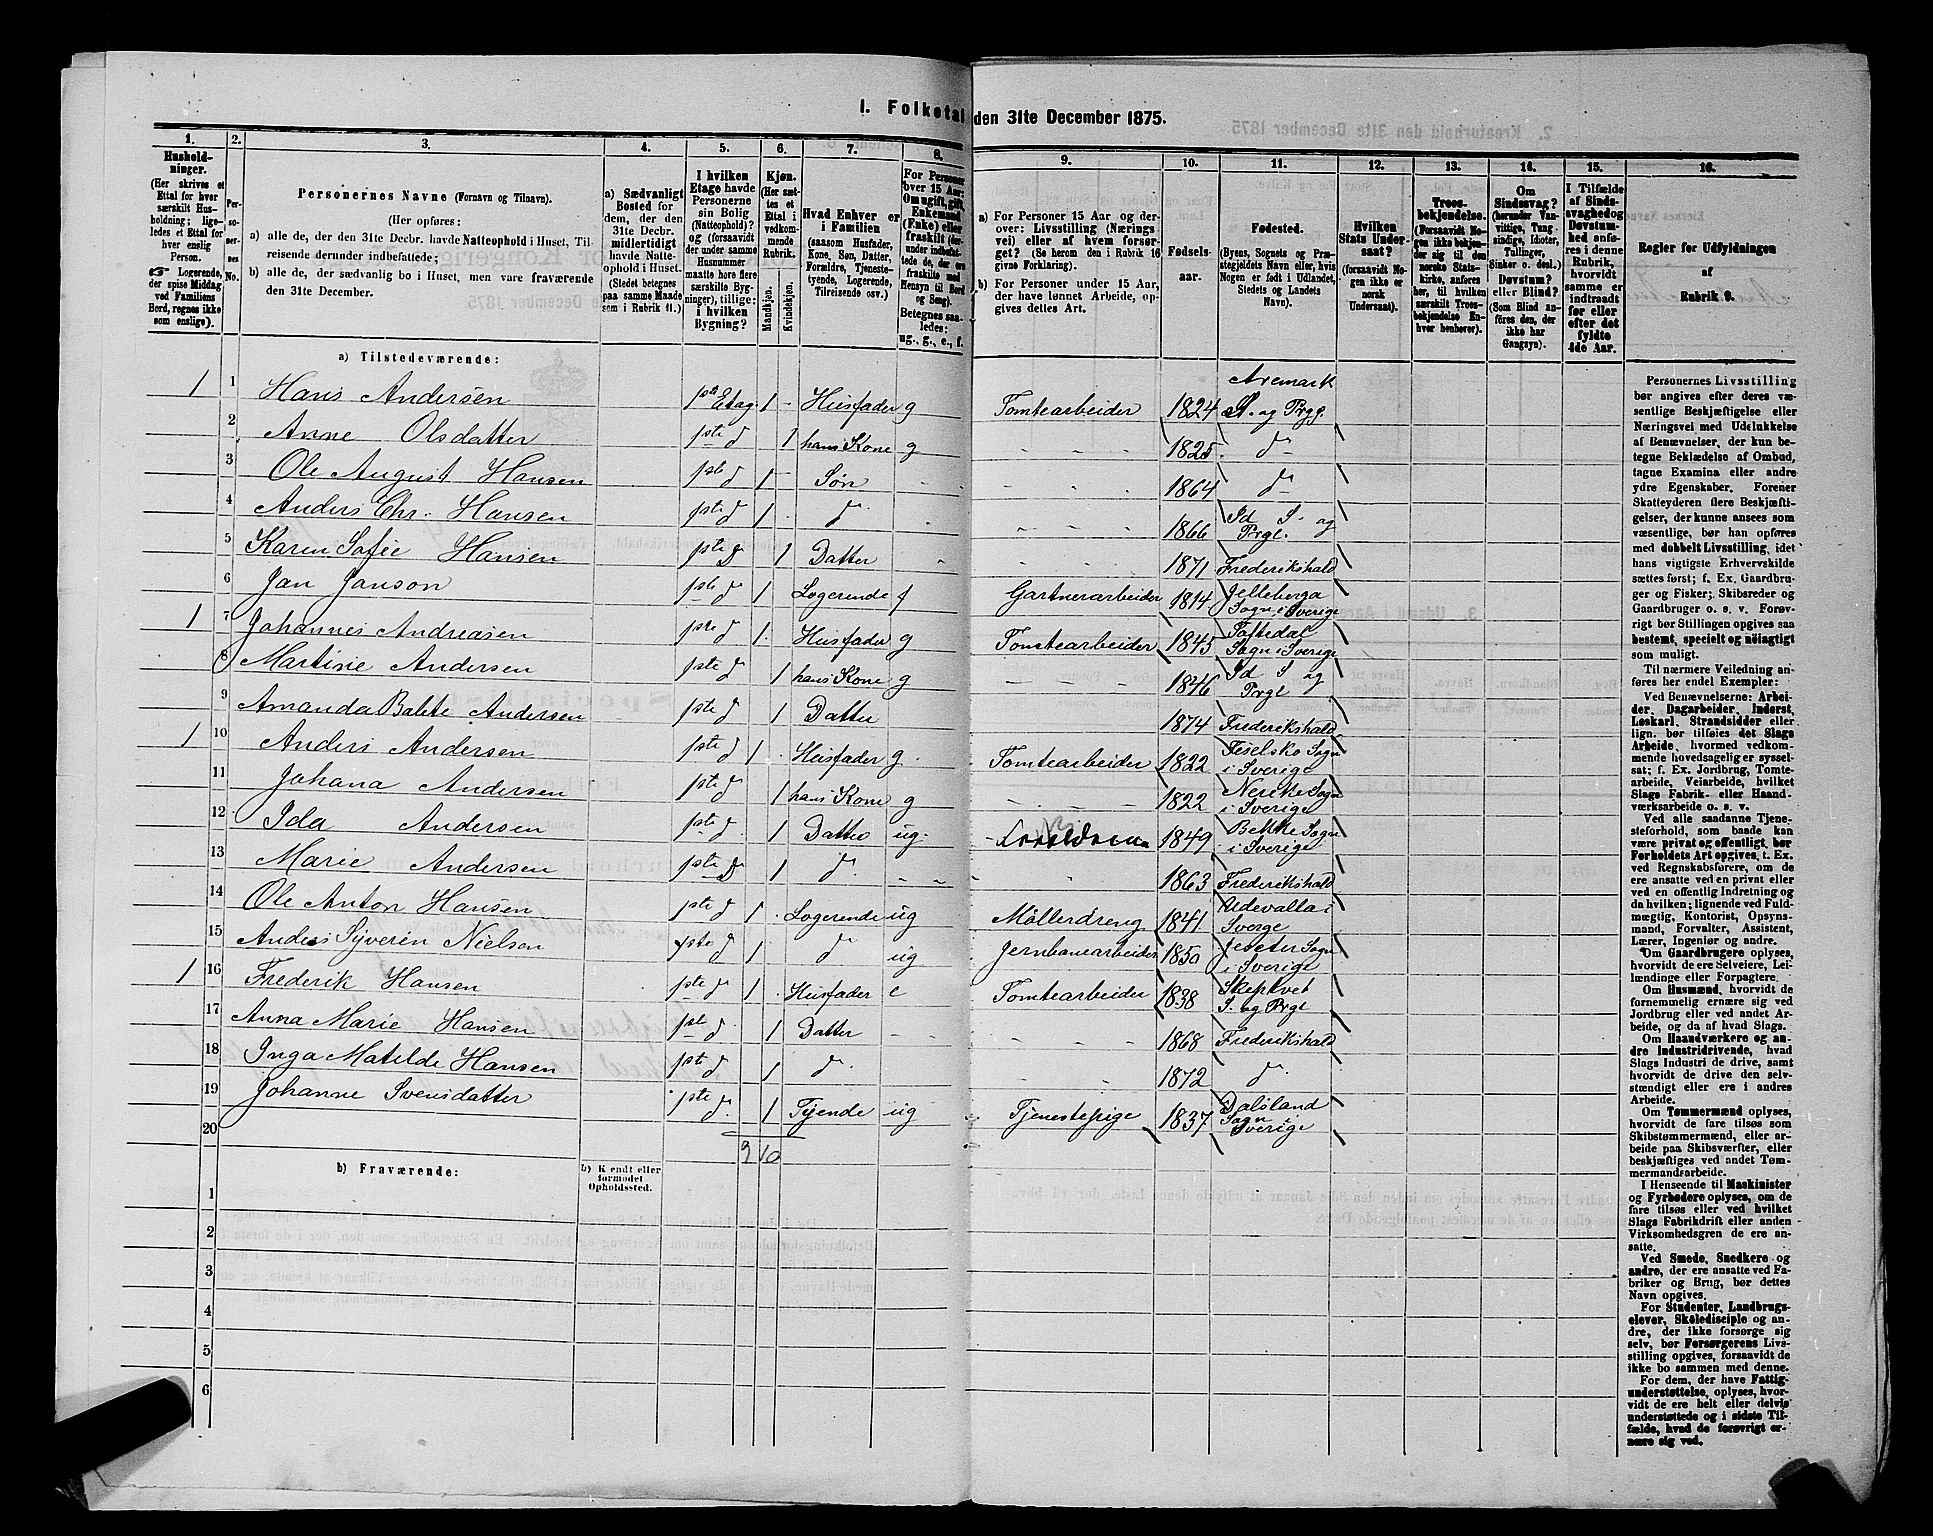 I. Folketal den 31te December 1875.
1. 2. 3. 4. 5. 6. 7. 8. 9. 10. 11. 12. 13. 14. 15. 16.
Husholdninger.
(Her skrives et
Ettal for hver
særskilt Husholdning;
ligeledes et Ettal for
hver enslig
Person.
☞ Logerende,
der spise Middag
ved Familiens
Bord, regnes ikke
som enslige).
Personernes No.
Personernes Navne (Fornavn og Tilnavn).
(Her opføres:
a) alle de, der den 31te Decbr. havde Natteophold i Huset, Tilreisende derunder indbefattede;
b) alle de, der sædvanlig bo i Huset, men vare fraværende
den 31te December.
a) Sædvanligt
Bosted for
dem, der den
31te Decbr.
midlertidigt
havde Natteophold i Huset.
(Stedet betegnes
paa samme Maade
som i Rubrik 11.)
I hvilken
Etage havde
Personerne
sin Bolig
(Natteophold)?
og (forsaavidt
der under samme
Husnummer
maatte høre flere
særskilte Bygninger), tillige:
i hvilken
Bygning?
Kjøn.
(Her sættes et
Ettal i
vedkommende
Rubrik.
Mandkjøn. Kvindekjøn.
Hvad Enhver er
i Familien
(saasom Husfader,
Kone, Søn, Datter,
Forældre, Tjenestetyende, Logerende,
Tilreisende osv.)
For Personer
over 15 Aar:
Om ugift, gift,
Enkemand
(Enke) eller
fraskilt
Betegnes saaledes:
ug., g., e., f.
a) For Personer 15 Aar og derover: Livsstilling (Næringsvei) eller af hvem forsørget? (Se herom den i Rubrik 16
givne Forklaring).
b) For Personer under 15 Aar,
der have lønnet Arbeide, opgives dettes Art.
Fødselsaar.
Fødested.
(Byens, Sognets og Præstegjeldets Navn eller, hvis
Nogen er født i Udlandet,
Stedets og Landets
Navn).
Hvilken
Stats Undersaat?
(forsaavidt Nogen ikke er
norsk
Undersaat).
Troesbekjendelse.
Om
Sindssvag?
Døvstum?
eller Blind?
(Som Blind anføres den, der
ikke har
Gangsyn).
I Tilfælde
af Sindssvaghed og
Døvstumhed anføres i denne
Rubrik,
hvorvidt
samme er
indtraadt
før eller
efter det
fyldte
4de Aar.
Regler for Udfyldningen
af
Rubrik 9.
a) Tilstedeværende:
1 1 Hans Andersen 1ste Etag. 1 - Husfader g Tomtearbeider 1824 Aremark S. og Prgl.
2 Anne Olsdatter 1ste d 1 hans Kone g 1825 d
3 Ole August Hansen 1ste d 1 - Søn 1864 d
4 Anders Chr. Hansen 1ste d 1 d 1866 Id S. og Prgl.
5 Karen Sofie Hansen 1ste d 1 Datter 1871 Frederikshald
6 Jan Janson 1ste d 1 Logerende f Gartnerarbeider 1814 Jelleberga Sogn i Sverige
1 7 Johannes Andreasen 1ste d 1 Husfader g Tomtearbeider 1845 Sogn i Sverige
8 Martine Andersen 1ste d 1 hans Kone g 1846 Id S og Prgl
9 Amanda Andersen 1ste d 1 Datter 1874 Frederikshald
1 10 Anders Andersen 1ste d 1 Husfader g Tomtearbeider 1822 Sogn i Sverige
11 Johana Andersen 1ste d 1 hans Kone g 1822 Nerike Sogn i Sverige
12 Ida Andersen 1ste d 1 Datter ug. 1849 Sogn i Sverige
13 Marie Andersen 1ste d 1 d. 1863 Frederikshald
14 Ole Anton Hansen 1ste d 1 Logerende ug Møllerdreng 1841 Udevalla i Sverge
15 Anders Syverin Nielson 1ste d 1 d ug Jernbanearbeider 1850 Sogn i Sverige
1 16 Frederik Hansen 1ste d 1 Husfader e Tomtearbeider 1838 Skeptvet S. og Prgl
17 Anna Marie Hansen 1ste d 1 Datter 1868 Frederikshald
18 Inga Matilde Hansen 1ste d 1 d 1872 d
19 Johanne Svensdatter 1ste d. 1 Tyende ug Tjenestepige 1837 Dalsland Sogn i Sverige
20
9 10
b) Fraværende:
b) Kjendt eller
formodet
Opholdssted.
1
2
3
4
5
6
Personernes Livsstilling
bør angives efter deres væsentlige Beskjæftigelse eller
Næringsvei med Udelukkelse
af Benævnelser, der kun betegne Beklædelse af Ombud,
tagne Examina eller andre
ydre Egenskaber. Forener
Skatteyderen flere Beskjæftigelser, der kunne ansees som
væsentlige, bør han opføres
med dobbelt Livsstilling, idet
hans vigtigste Erhvervskilde
sættes først; f. Ex. Gaardbruger og Fisker; Skibsreder og
Gaardbruger o. s. v. Forøvrigt bør Stillingen opgives saa
bestemt, specielt og nøiagtigt
som muligt.
Til nærmere Veiledning anføres her endel Exempler:
Ved Benævnelserne: Arbeider, Dagarbeider, Inderst,
Løskarl, Strandsidder eller
lign. bør tilføies det Slags
Arbeide, hvormed vedkommende hovedsagelig er sysselsat; f. Ex. Jordbrug, Tomtearbeide, Veiarbeide, hvilket
Slags Fabrik- eller Haandværksarbeide o. s. v.
Ved alle saadanne Tjenesteforhold, som baade kan
være privat og offentligt, bør
Forholdets Art opgives, t. Ex.
ved Regnskabsførere, om de
ere ansatte ved en privat eller
ved en offentlig Indretning og
da hvilken; lignende ved Fuldmægtig, Kontorist, Opsynsmand, Forvalter, Assistent,
Lærer, Ingeniør og andre.
Om Gaardbrugere oplyses,
hvorvidt de ere Selveiere, Leilændinge eller Forpagtere.
Om Husmænd, hvorvidt de
fornemmelig ernære sig ved
Jordbrug eller ved andet Arbeide, og da af hvad Slags.
Om Haandværkere og andre Industridrivende, hvad
Slags Industri de drive, samt
hvorvidt de drive den selvstændigt eller ere i andres
Arbeide.
Om Tømmermænd oplyses,
hvorvidt de fare tilsøs som
Skibstømmermænd, eller arbeide paa Skibsværfter, eller
beskjæftiges ved andet Tømmermandsarbeide.
I Henseende til Maskinister
og Fyrbødere oplyses, om de
fare tilsøs eller ved hvilket
Slags Fabrikdrift eller anden
Virksomhedsgren de ere ansatte.
Ved Smede, Snedkere og
andre, der ere ansatte ved Fabriker og Brug, bør dettes
Navn opgives.
For Studenter, Landbrugselever, Skoledisciple og andre, der ikke forsørge sig
selv, bør Forsørgerens Livsstilling opgives, forsaavidt de
ikke bo sammen med denne.
For dem, der have Fattigunderstøttelse, oplyses, hvorvidt de ere helt eller delvis
understøttede og i sidste Tilfælde, hvad de forøvrigt ernære sig ved.